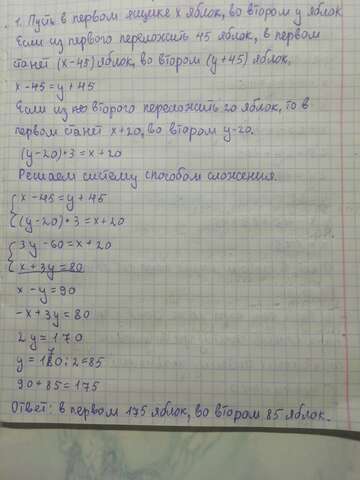 1. Пусть в первом ящике x яблок, во втором y яблок
Если из первого переложить 45 яблок, в первом
станет (x-45) яблок, во втором (y+45) яблок,
x-45=y+45
Если из второго переложить 20 яблок, то в
первом станет x+20, во втором y-20.
(y-20)•3=x+20
Решаем систему способом сложения.
x-45=y+45
(y-20)•3=x+20
3y-60=x+20
x+3y=80
x-y=90
-x+3y=80
2y=170
y=170:2=85
90+85=175
Ответ: в первом 175 яблок, во втором 85 яблок.